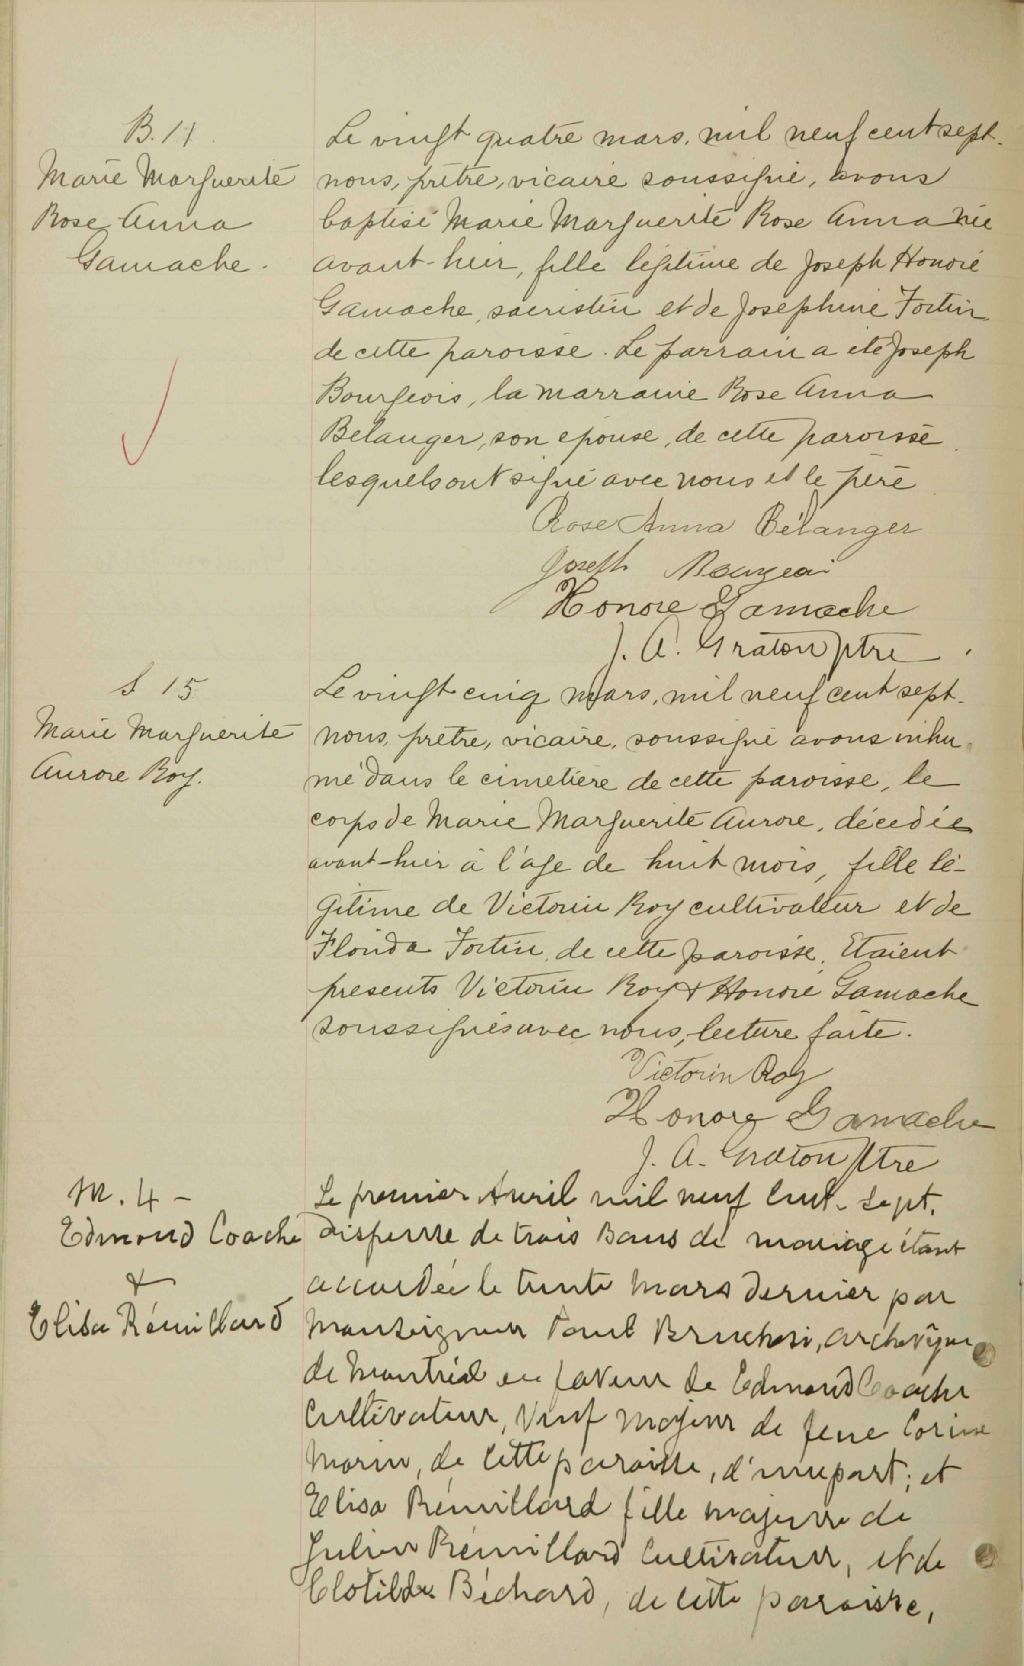 B. 11.
Marie Marguerite
Rose Anna
Gamache.
Le vingt quatre mars, mil neuf cent sept.
nous, prêtre, vicaire soussigné, avons
baptisé Marie Marguerite Rose Anna née
avant-hier, fille légitime de Joseph Honoré
Gamache, sacristin et de Josephine Fortin
de cette paroisse. Le parrain a été Joseph
Bourgeois, la marraine Rose Anna
Bélanger, son épouse, de cette paroisse
lesquels ont signé avec nous et le père
Rose Anna Bélanger
Joseph Bourgeois
Honore Gamache
J. A. Graton ptre
S 15
Marie Marguerite
Aurore Roy.
Le vingt cinq mars, mil neuf cent sept.
nous, prêtre, vicaire, soussigné avons inhu-
mé dans le cimetière de cette paroisse, le
corps de Marie Marguerite Aurore, décédée
avant-hier à l'age de huit mois, fille lé-
gitime de Victorin Roy cultivateur et de
Florida Fortin, de cette paroisse. Etaient
presents Victorin Roy & Honoré Gamache
soussignés avec nous, lecture faite.
Victorin Roy
Honore Gamache
J. A. Graton Ptre
M. 4 -
Edmond Coache
&
Elisa Rémillard
Le premier Avril mil neuf cent-sept,
dispense de trois Bans de mariage étant
accordée le trente Mars dernier par
Monseigneur Paul Bruchési, archevêque
de Montréal en faveur de Edmond Coache
Cultivateur, Veuf majeur de feue Corine
Morin, de cette paroisse, d'une part; et
Elisa Rémillard fille majeure de
Julien Rémillard Cultivateur, et de
Clotilde Béchard, de cette paroisse,